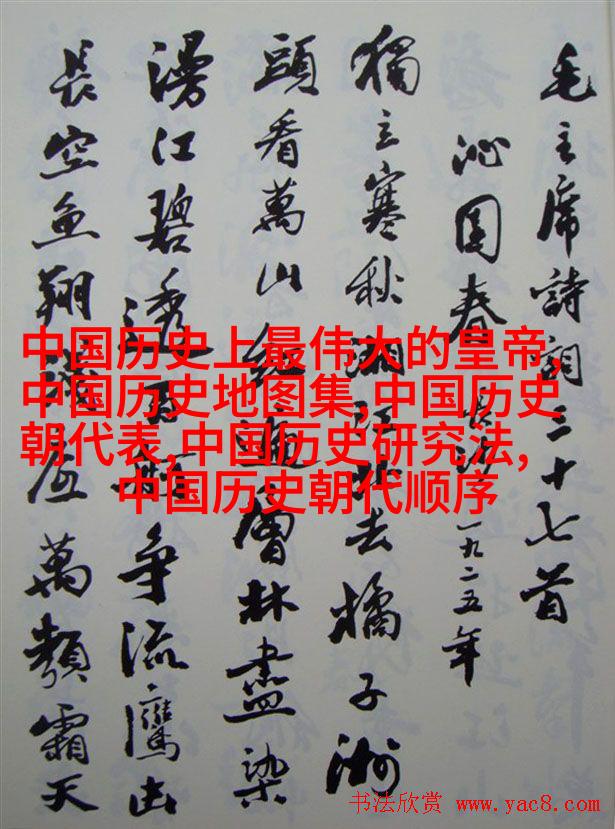 毛主席詩詞三十七首
沁園春 長沙 一九二五年
獨立寒秋湘江北去橘子洲
頭看萬山紅遍層林盡染
漫江碧透百舸争流鷹击
長空魚翔淺底萬類霜天
中国历史上最伟大的皇帝,
中国历史地图集,中国历史
朝代表,中国历史研究法,
中国历史朝代顺序
书法欣赏 www.yac8.com